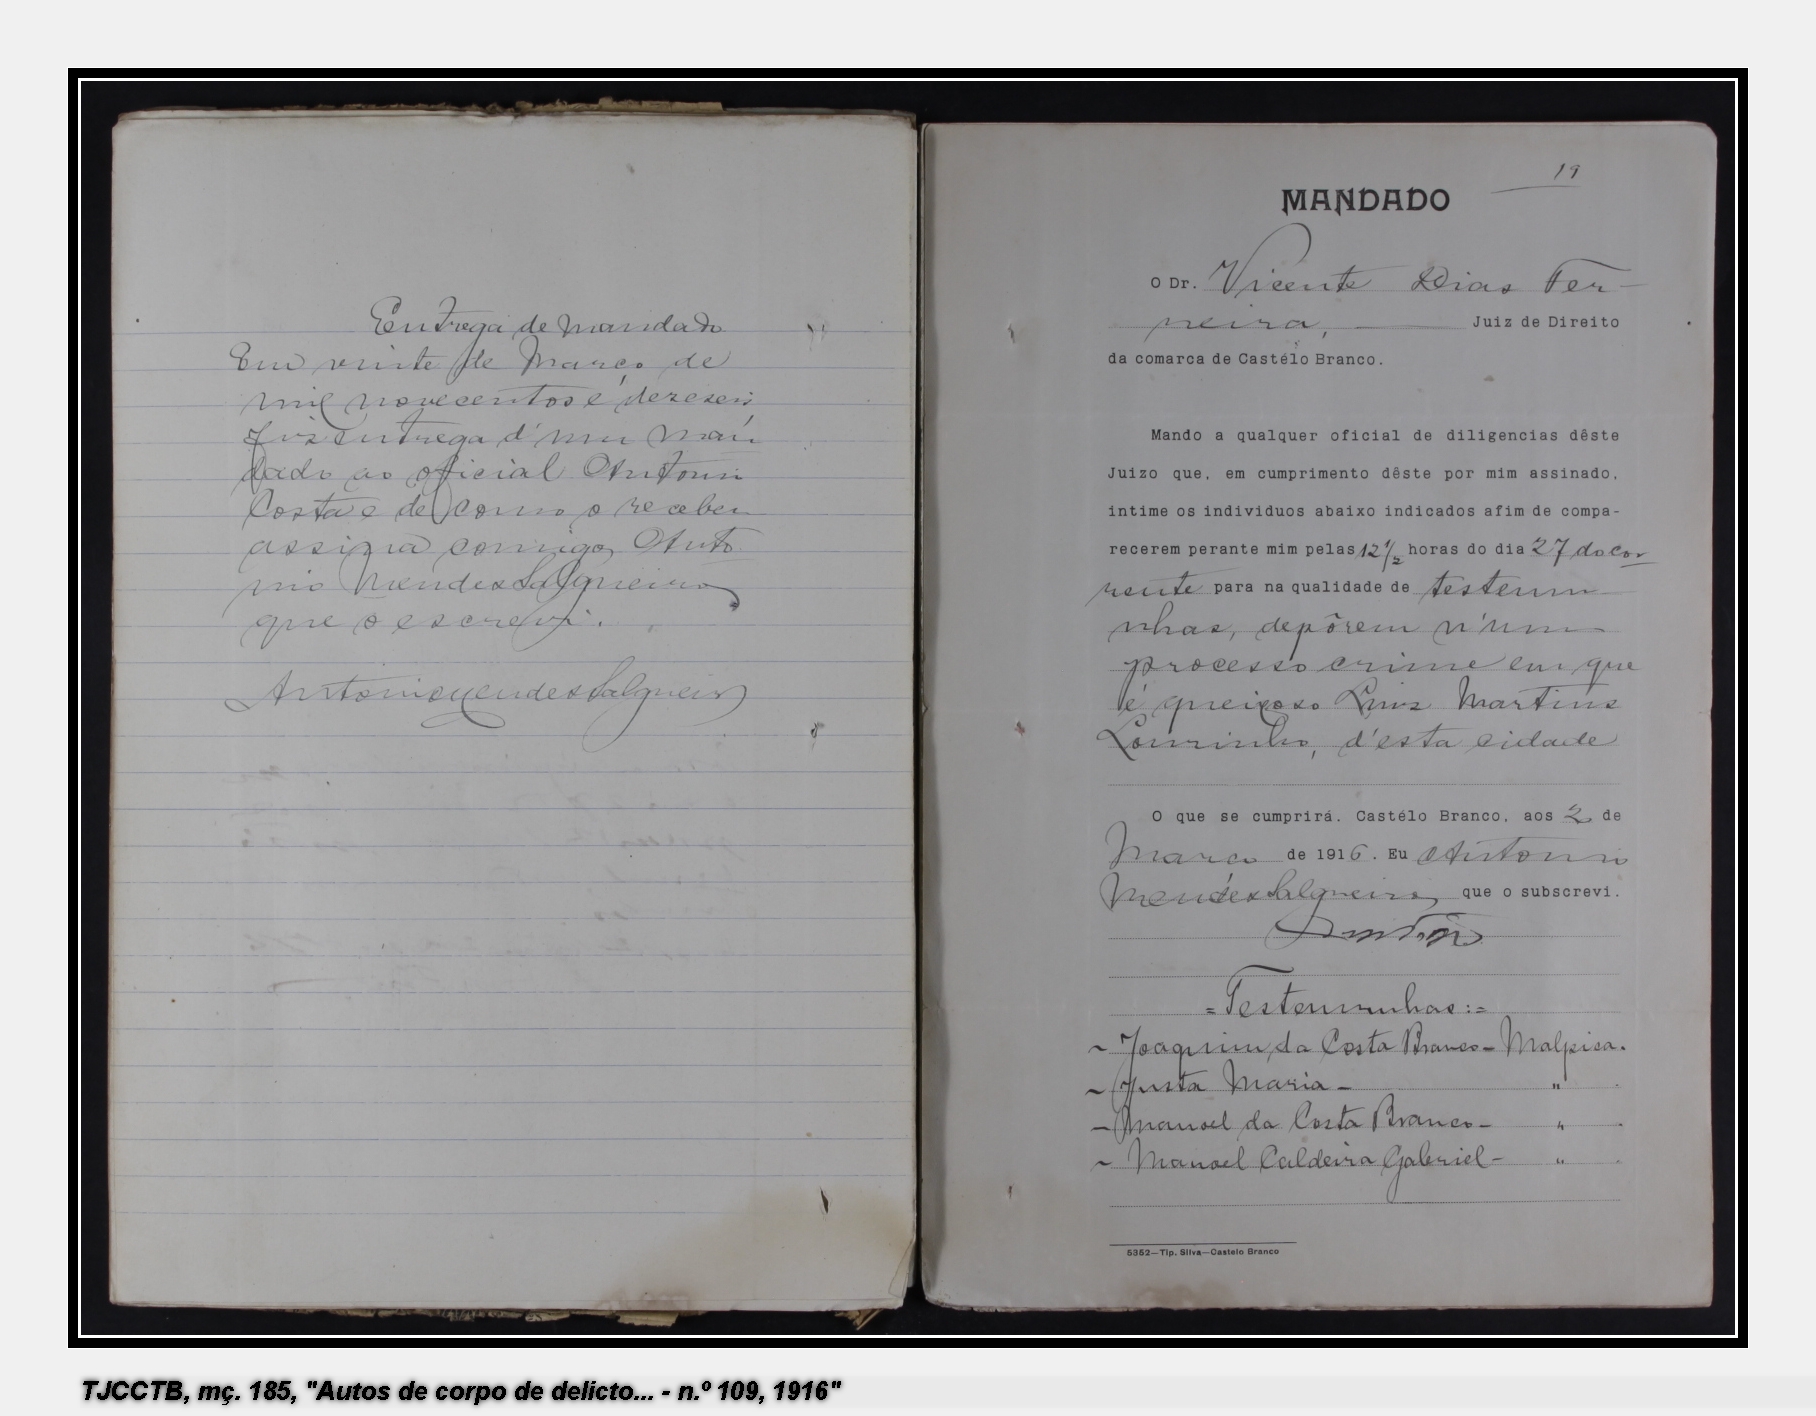 Entrega de mandado
Em vinte de Março de
mil novecentos e dezeseis
fiz entrega d'um man
dado ao oficial Antonio
Costa e de como o recebeu
assina comigo Anto
nio Mendes Salgueiro
que o escrevi.
Antonio Mendes Salgueiro
19
MANDADO
O Dr. Vicente Dias Fer-
reira, Juiz de Direito
da comarca de Castélo Branco.
Mando a qualquer oficial de diligencias dêste
Juizo que, em cumprimento dêste por mim assinado,
intime os individuos abaixo indicados afim de compa-
recerem perante mim pelas 12 1/2 horas do dia 27 do cor
rente para na qualidade de testemu
nhas, depôrem n'um
processo crime em que
é queixoso Luiz Martins
Lourinho, d'esta cidade
O que se cumprirá. Castélo Branco, aos 2 de
Março de 1916. Eu Antonio
Mendes Salgueiro que o subscrevi.
= Testemunhas: =
~ Joaquim da Costa Branco - Malpica.
~ Justa Maria - "
- Manoel da Costa Branco - "
~ Manoel Caldeira Gabriel - "
5352—Tip. Silva—Castelo Branco
TJCCTB, mç. 185, "Autos de corpo de delicto... - n.º 109, 1916"